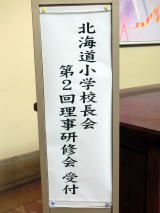 北海道小学校長会
第2回理事研修会 受付